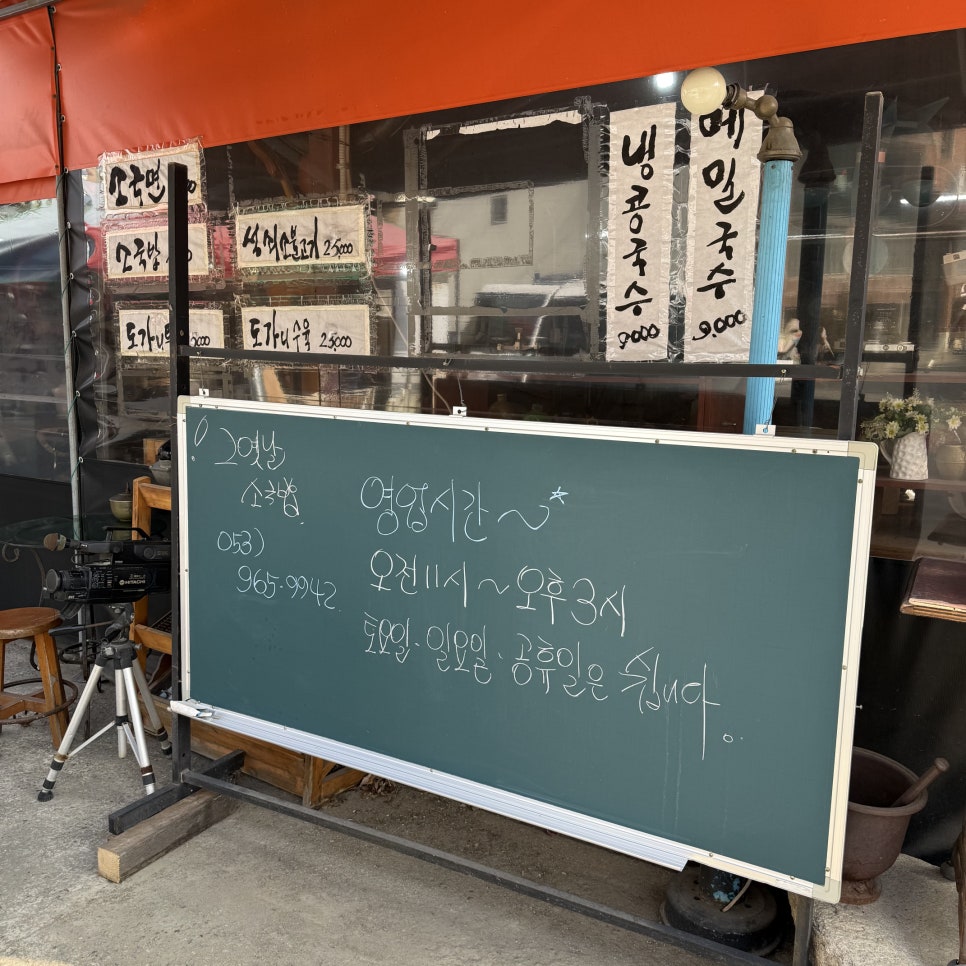 소국면
소국밥
석쇠소불고기 25,000
도가니수육 25,000
냉콩국수
9,000
메밀국수
9,000
그옛날
소국밥
053)
965-9942
영업시간~
오전11시~오후3시
토요일·일요일·공휴일은 쉽니다.
HITACHI